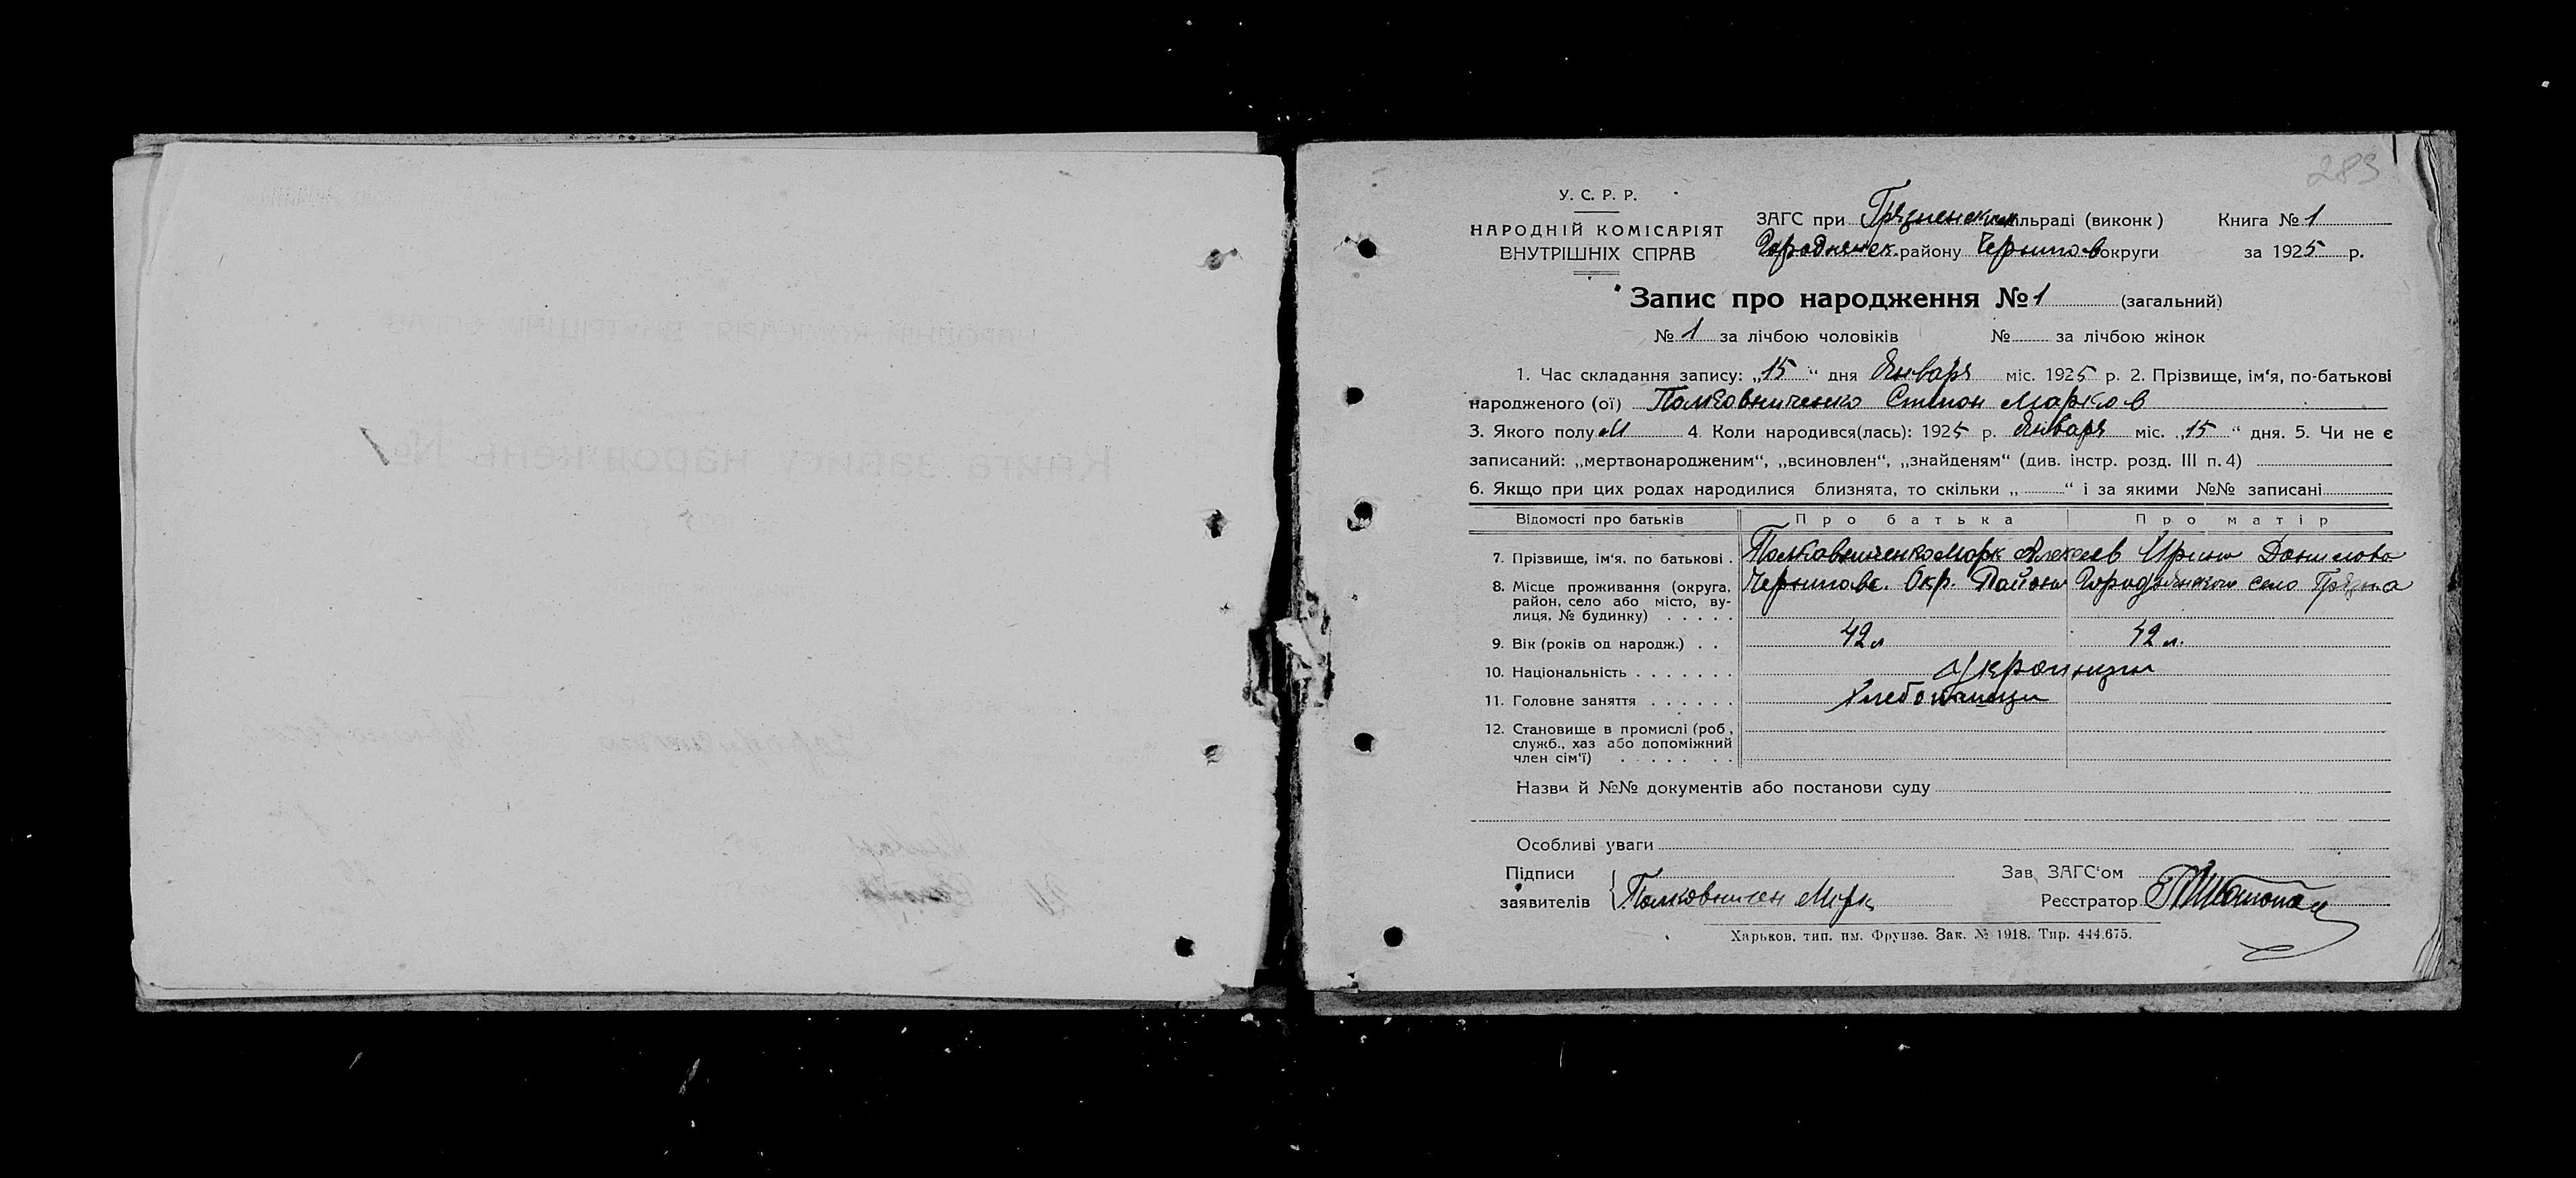 283
У. С. Р. Р.
НАРОДНІЙ КОМІСАРІЯТ
ВНУТРІШНІХ СПРАВ
ЗАГС при Грязненском сільраді (виконк)
Книга № 1
Городнянск. району Чернигов округи
за 1925 р.
Запис про народження № 1 (загальний)
№ 1 за лічбою чоловіків № за лічбою жінок
1. Час складання запису: „15“ дня Января міс. 1925 р. 2. Прізвище, ім‘я, по-батькові
народженого (ої) Полковниченко Степан Марков
3. Якого полу М 4. Коли народився(лась): 1925 р. Января міс. „15“ дня. 5. Чи не є
записаний: „мертвонародженим“, „всиновлен“, „знайденям“ (див. інстр. розд. III п. 4)
6. Якщо при цих родах народилися близнята, то скільки „ “ і за якими №№ записані
Відомості про батьків Про батька Про матір
7. Прізвище, ім‘я, по батькові . Полковниченко Марк Алексеев Ирина Данилова
8. Місце проживання (округа, Черниговс. Окр. Района Городнянского село Грязна
район, село або місто, ву-
лиця, № будинку) . . . . .
9. Вік (років од народж.) . . 42 л 42 л.
10. Національність . . . . . . . Украинцы
11. Головне заняття . . . . . . Хлебопашцы
12. Становище в промислі (роб,
служб., хаз або допоміжний
член сім‘ї) . . . . . . .
Назви й №№ документів або постанови суду
Особливі уваги
Підписи
заявителів Полковничен Марк
Зав. ЗАГС‘ом
Реєстратор
Харьков, тип. им. Фрунзе. Зак. № 1918. Тир. 444.675.